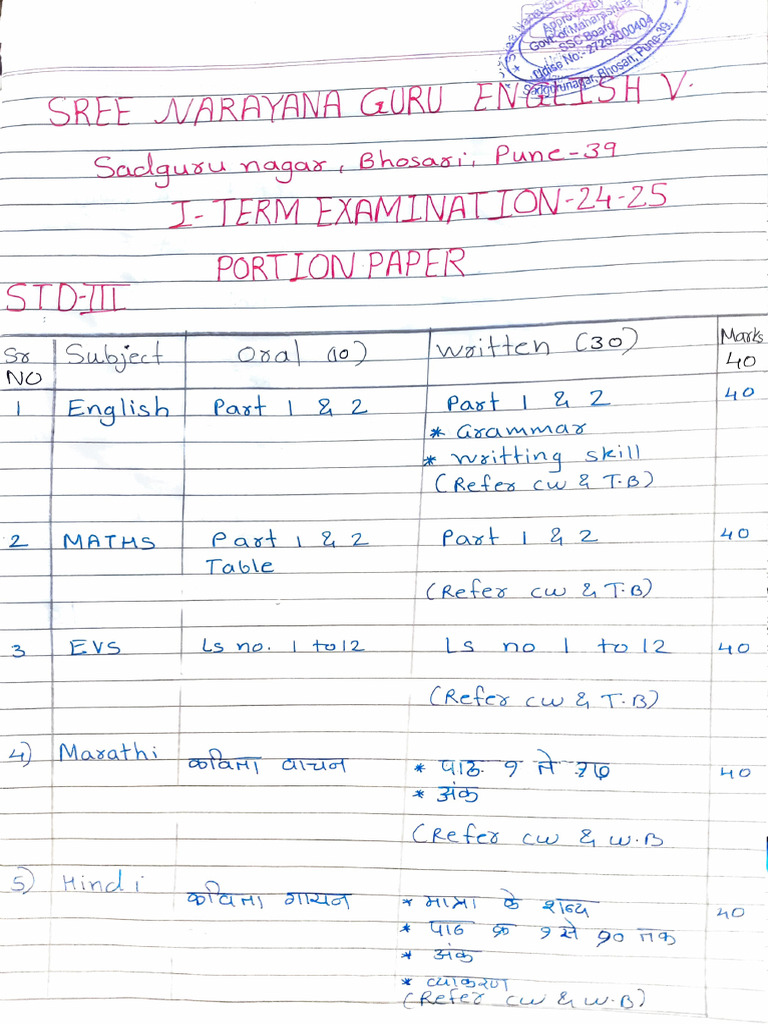 Approved by
Govt. of Maharashtra
SSC Board
Udise No.: 27252000404
Sadgurunagar, Bhosari, Pune-39.
SREE NARAYANA GURU ENGLISH V.
Sadguru nagar, Bhosari, Pune-39
I-TERM EXAMINATION-24-25
PORTION PAPER
STD-III
Sr NO Subject Oral (10) Written (30) Marks 40
1 English Part 1 & 2 Part 1 & 2 40
* Grammar
* Writting skill
(Refer cw & T.B)
2 MATHS Part 1 & 2 Part 1 & 2 40
Table
(Refer cw & T.B)
3 EVS Ls no. 1 to 12 Ls no 1 to 12 40
(Refer cw & T.B)
4) Marathi कविता वाचन * पाठ १ ते 40
* अंक
(Refer cw & W.B
5) Hindi कविता गायन * मात्रा के शब्द 40
* पाठ क्र १ से १० तक
* अंक
* व्याकरण
(Refer cw & W.B)